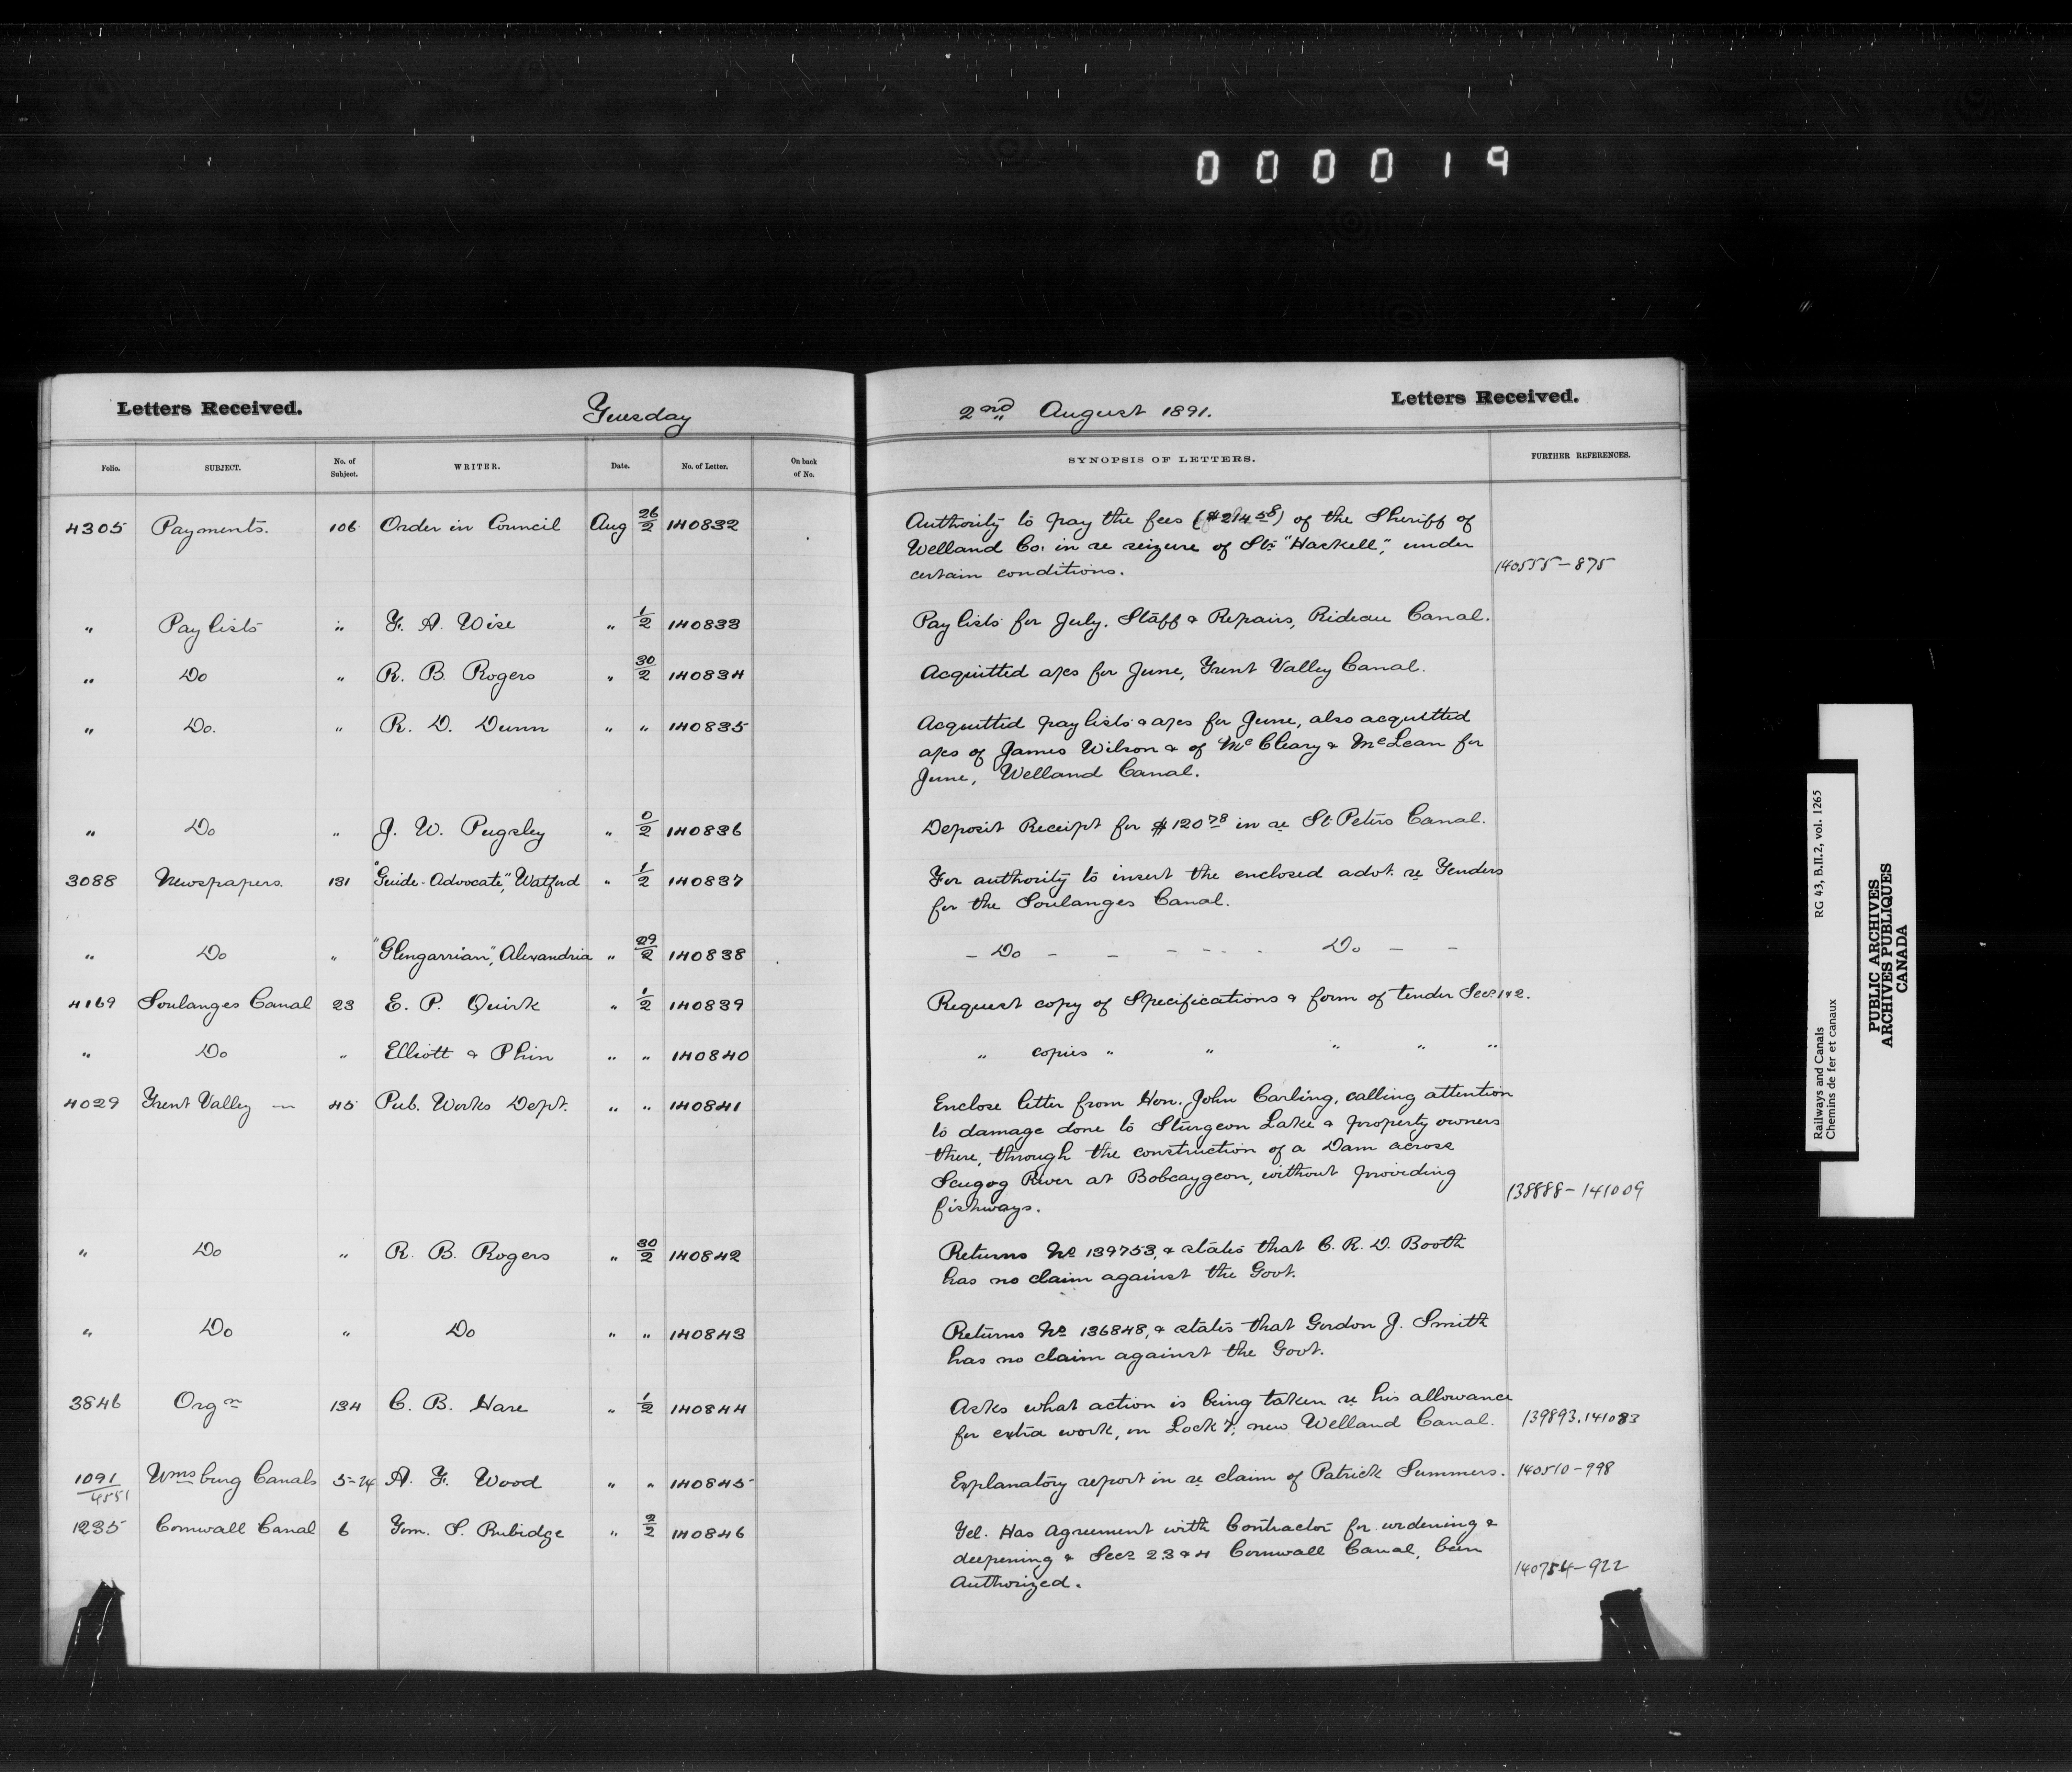 0 0 0 0 1 9
Letters Received. Tuesday 2nd August 1891. Letters Received.
Folio. SUBJECT. No. of Subject. WRITER. Date. No. of Letter. On back of No. SYNOPSIS OF LETTERS. FURTHER REFERENCES.
4305 Payments. 106 Order in Council Aug 26/2 140832 Authority to pay the fees ($214 58) of the Sheriff of
Welland Co. in re seizure of Str "Haskell", under
certain conditions. 140555-875
" Pay lists " F. A. Wise " 1/2 140833 Pay lists for July. Staff & Repairs, Rideau Canal.
" Do " R. B. Rogers " 30/2 140834 Acquitted a/cs for June, Trent Valley Canal.
" Do. " R. D. Dunn " " 140835 Acquitted pay lists & a/cs for June, also acquitted
a/cs of James Wilson & of McCleary & McLean for
June, Welland Canal.
" Do " J. W. Pugsley " 0/2 140836 Deposit Receipt for $120 78 in re St. Peters Canal.
3088 Newspapers. 131 "Guide-Advocate", Watford " 1/2 140837 For authority to insert the enclosed advt. re Tenders
for the Soulanges Canal.
" Do " "Glengarrian", Alexandria " 29/2 140838 - Do - - - - - - Do - -
4169 Soulanges Canal 23 E. P. Quirk " 1/2 140839 Request copy of Specifications & form of tender Secs 1 & 2.
" Do " Elliott & Phin " " 140840 " copies " " " " "
4029 Trent Valley — 45 Pub. Works Dept. " " 140841 Enclose letter from Hon. John Carling, calling attention
to damage done to Sturgeon Lake & property owners
there, through the construction of a Dam across
Scugog River at Bobcaygeon, without providing
fishways. 138888-141009
" Do " R. B. Rogers " 30/2 140842 Returns No 139753, & states that C. R. D. Booth
has no claim against the Govt.
" Do " Do " " 140843 Returns No 136848, & states that Gordon J. Smith
has no claim against the Govt.
3846 Orgn 134 C. B. Hare " 1/2 140844 Asks what action is being taken re his allowance
for extra work, on Lock 7, new Welland Canal. 139893.141083
1091/4551 Wmsburg Canals 5-74 A. F. Wood " " 140845 Explanatory report in re claim of Patrick Summers. 140510-998
1235 Cornwall Canal 6 Tom. S. Rubidge " 2/2 140846 Tel. Has Agreement with Contractor for widening &
deepening & Secs 2 3 & 4 Cornwall Canal, been
Authorized. 140754-922
Railways and Canals RG 43, B.II.2, vol. 1265
Chemins de fer et canaux
PUBLIC ARCHIVES
ARCHIVES PUBLIQUES
CANADA